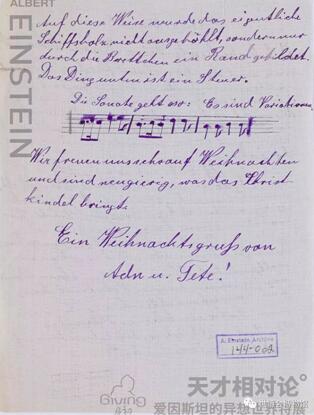 ALBERT
EINSTEIN
Auf diese Weise wurde das eigentliche
Schiffsholz nicht ausgehöhlt, sondern nur
durch die Brettchen ein Rand gebildet.
Das Ding unten ist ein Steuer.
Die Sonate geht so: Es sind Variationen,
Wir freuen uns schon auf Weihnachten
und sind neugierig, was das Christ-
kindel bringt.
Ein Weihnachtsgruss von
Adn u. Tete!
A. Einstein Archive
144-002
Giving
天才相对论
爱因斯坦的异想世界特展